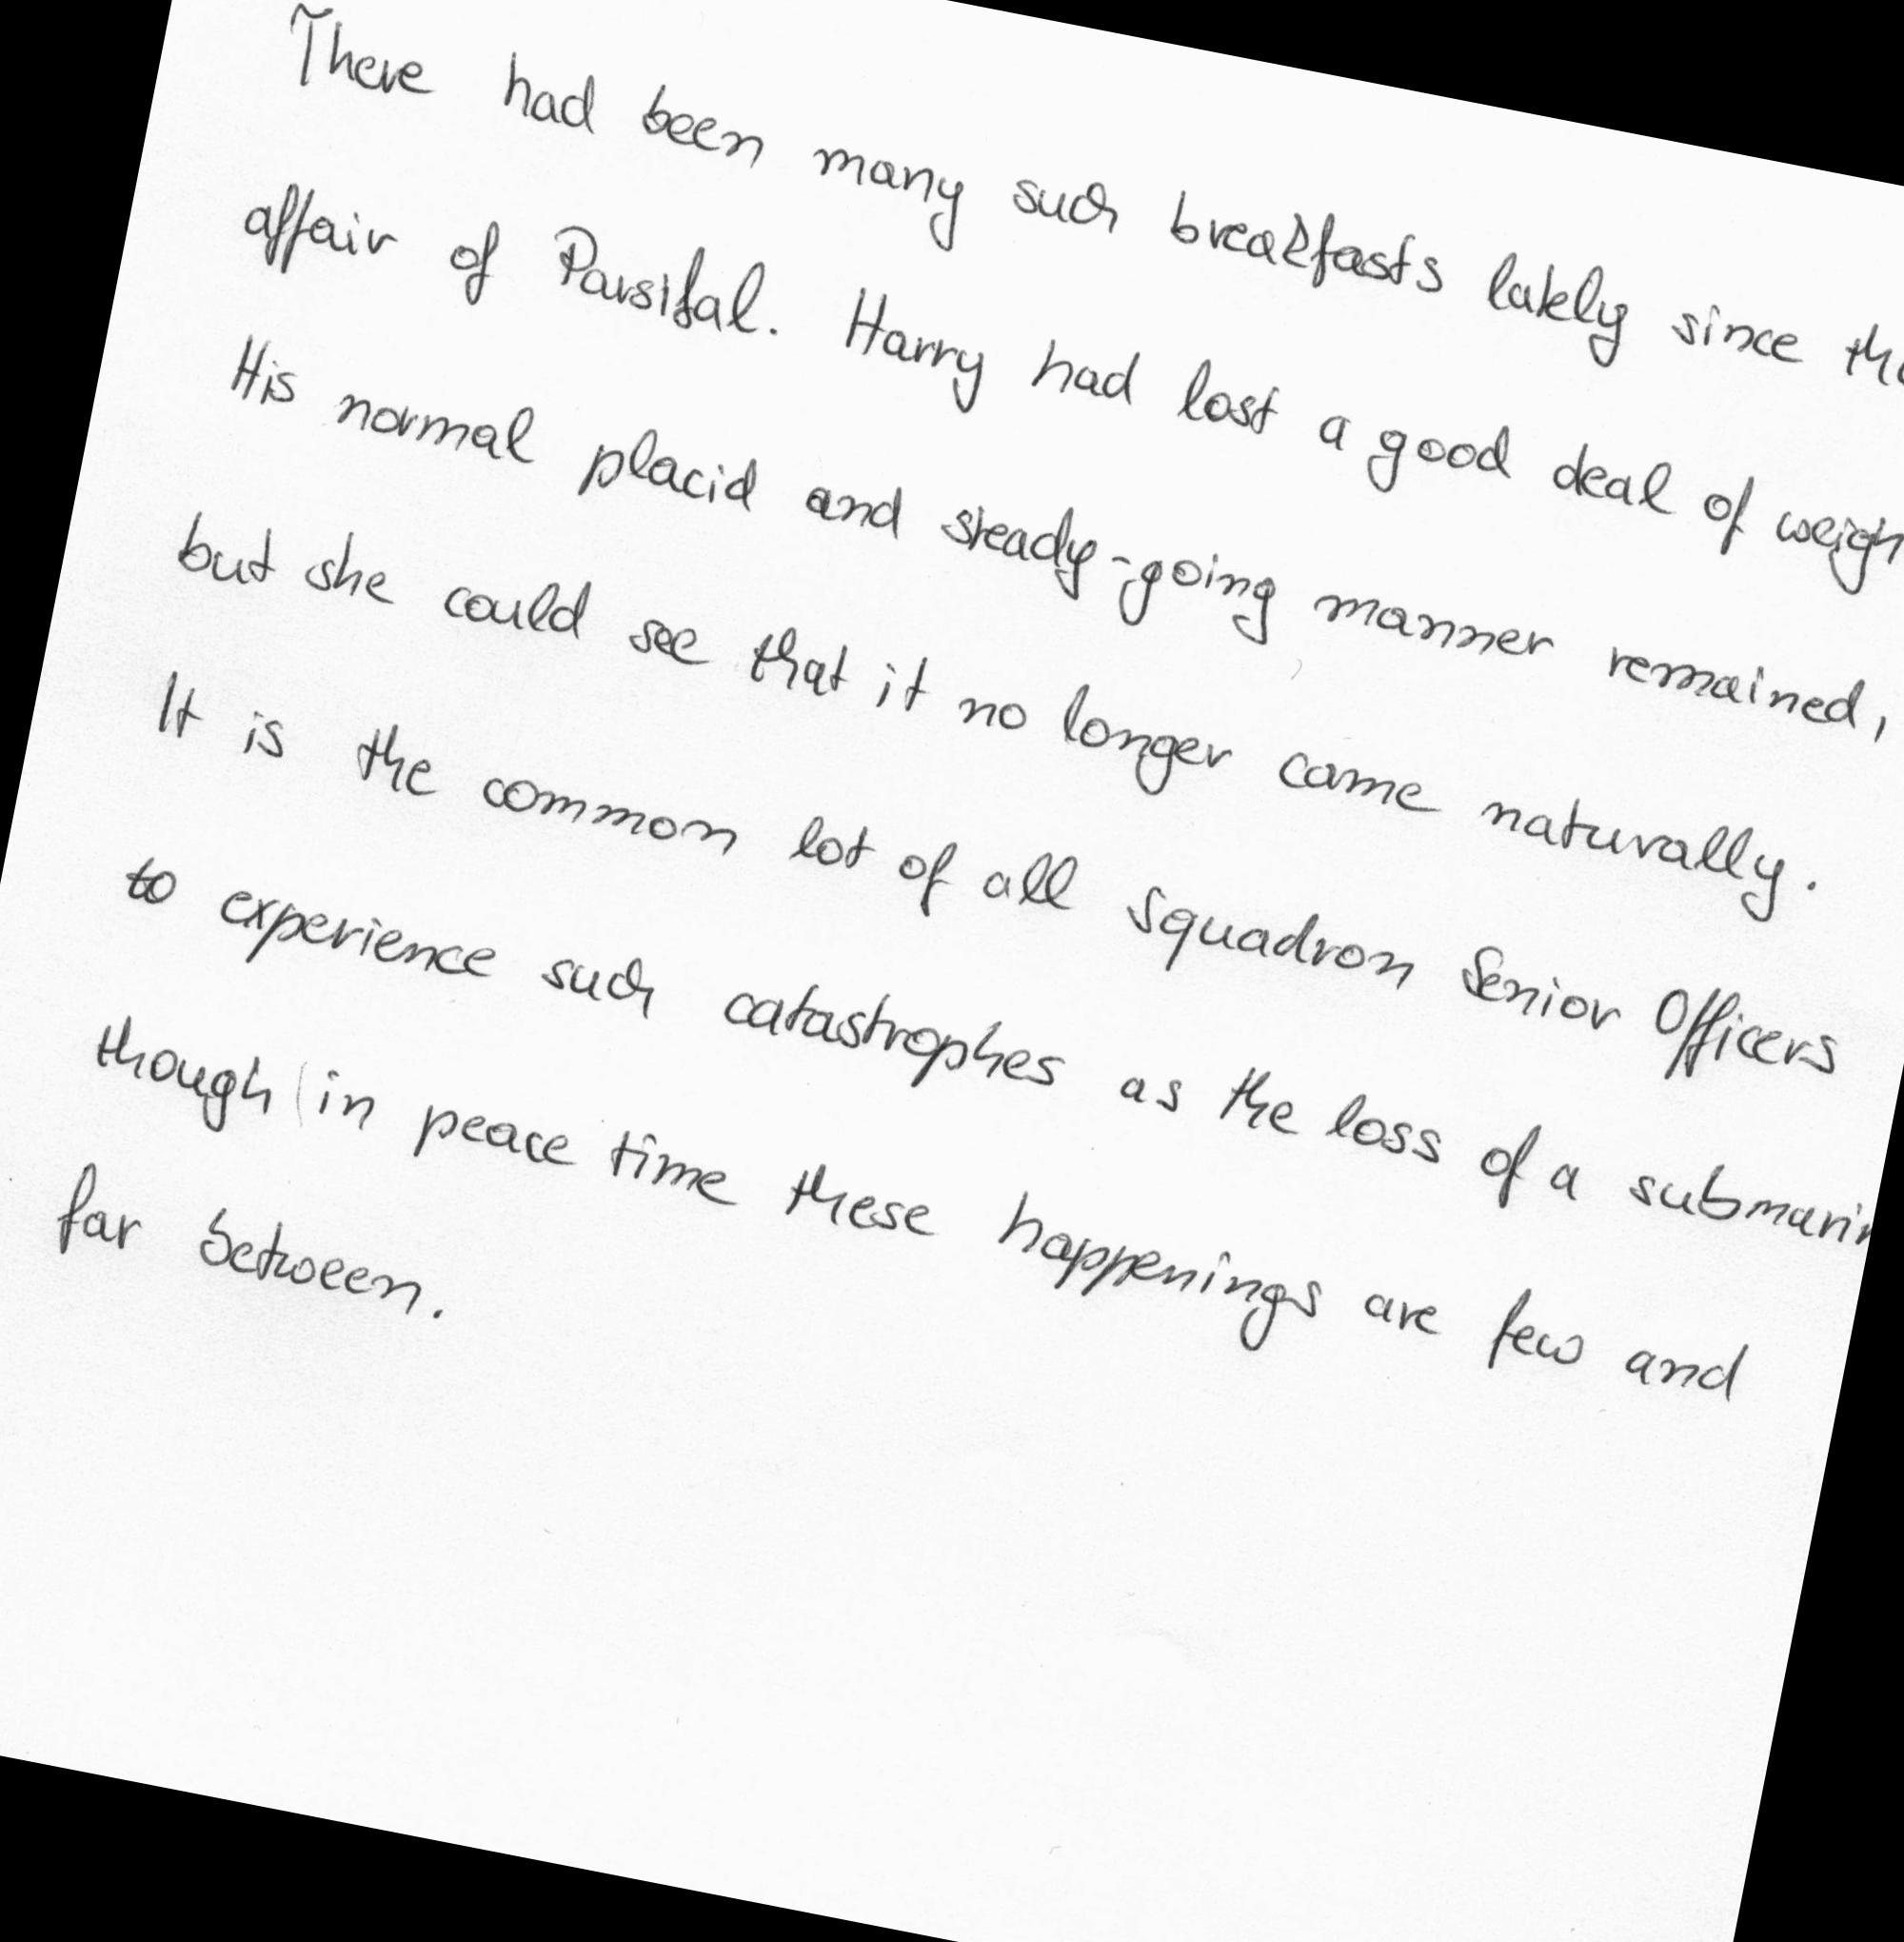 There had been many such breakfasts lately since the
affair of Parsifal. Harry had lost a good deal of weigh
His normal placid and steady-going manner remained,
but she could see that it no longer came naturally.
It is the common lot of all Squadron Senior Officers
to experience such catastrophes as the loss of a submarin
though in peace time these happenings are few and
far between.